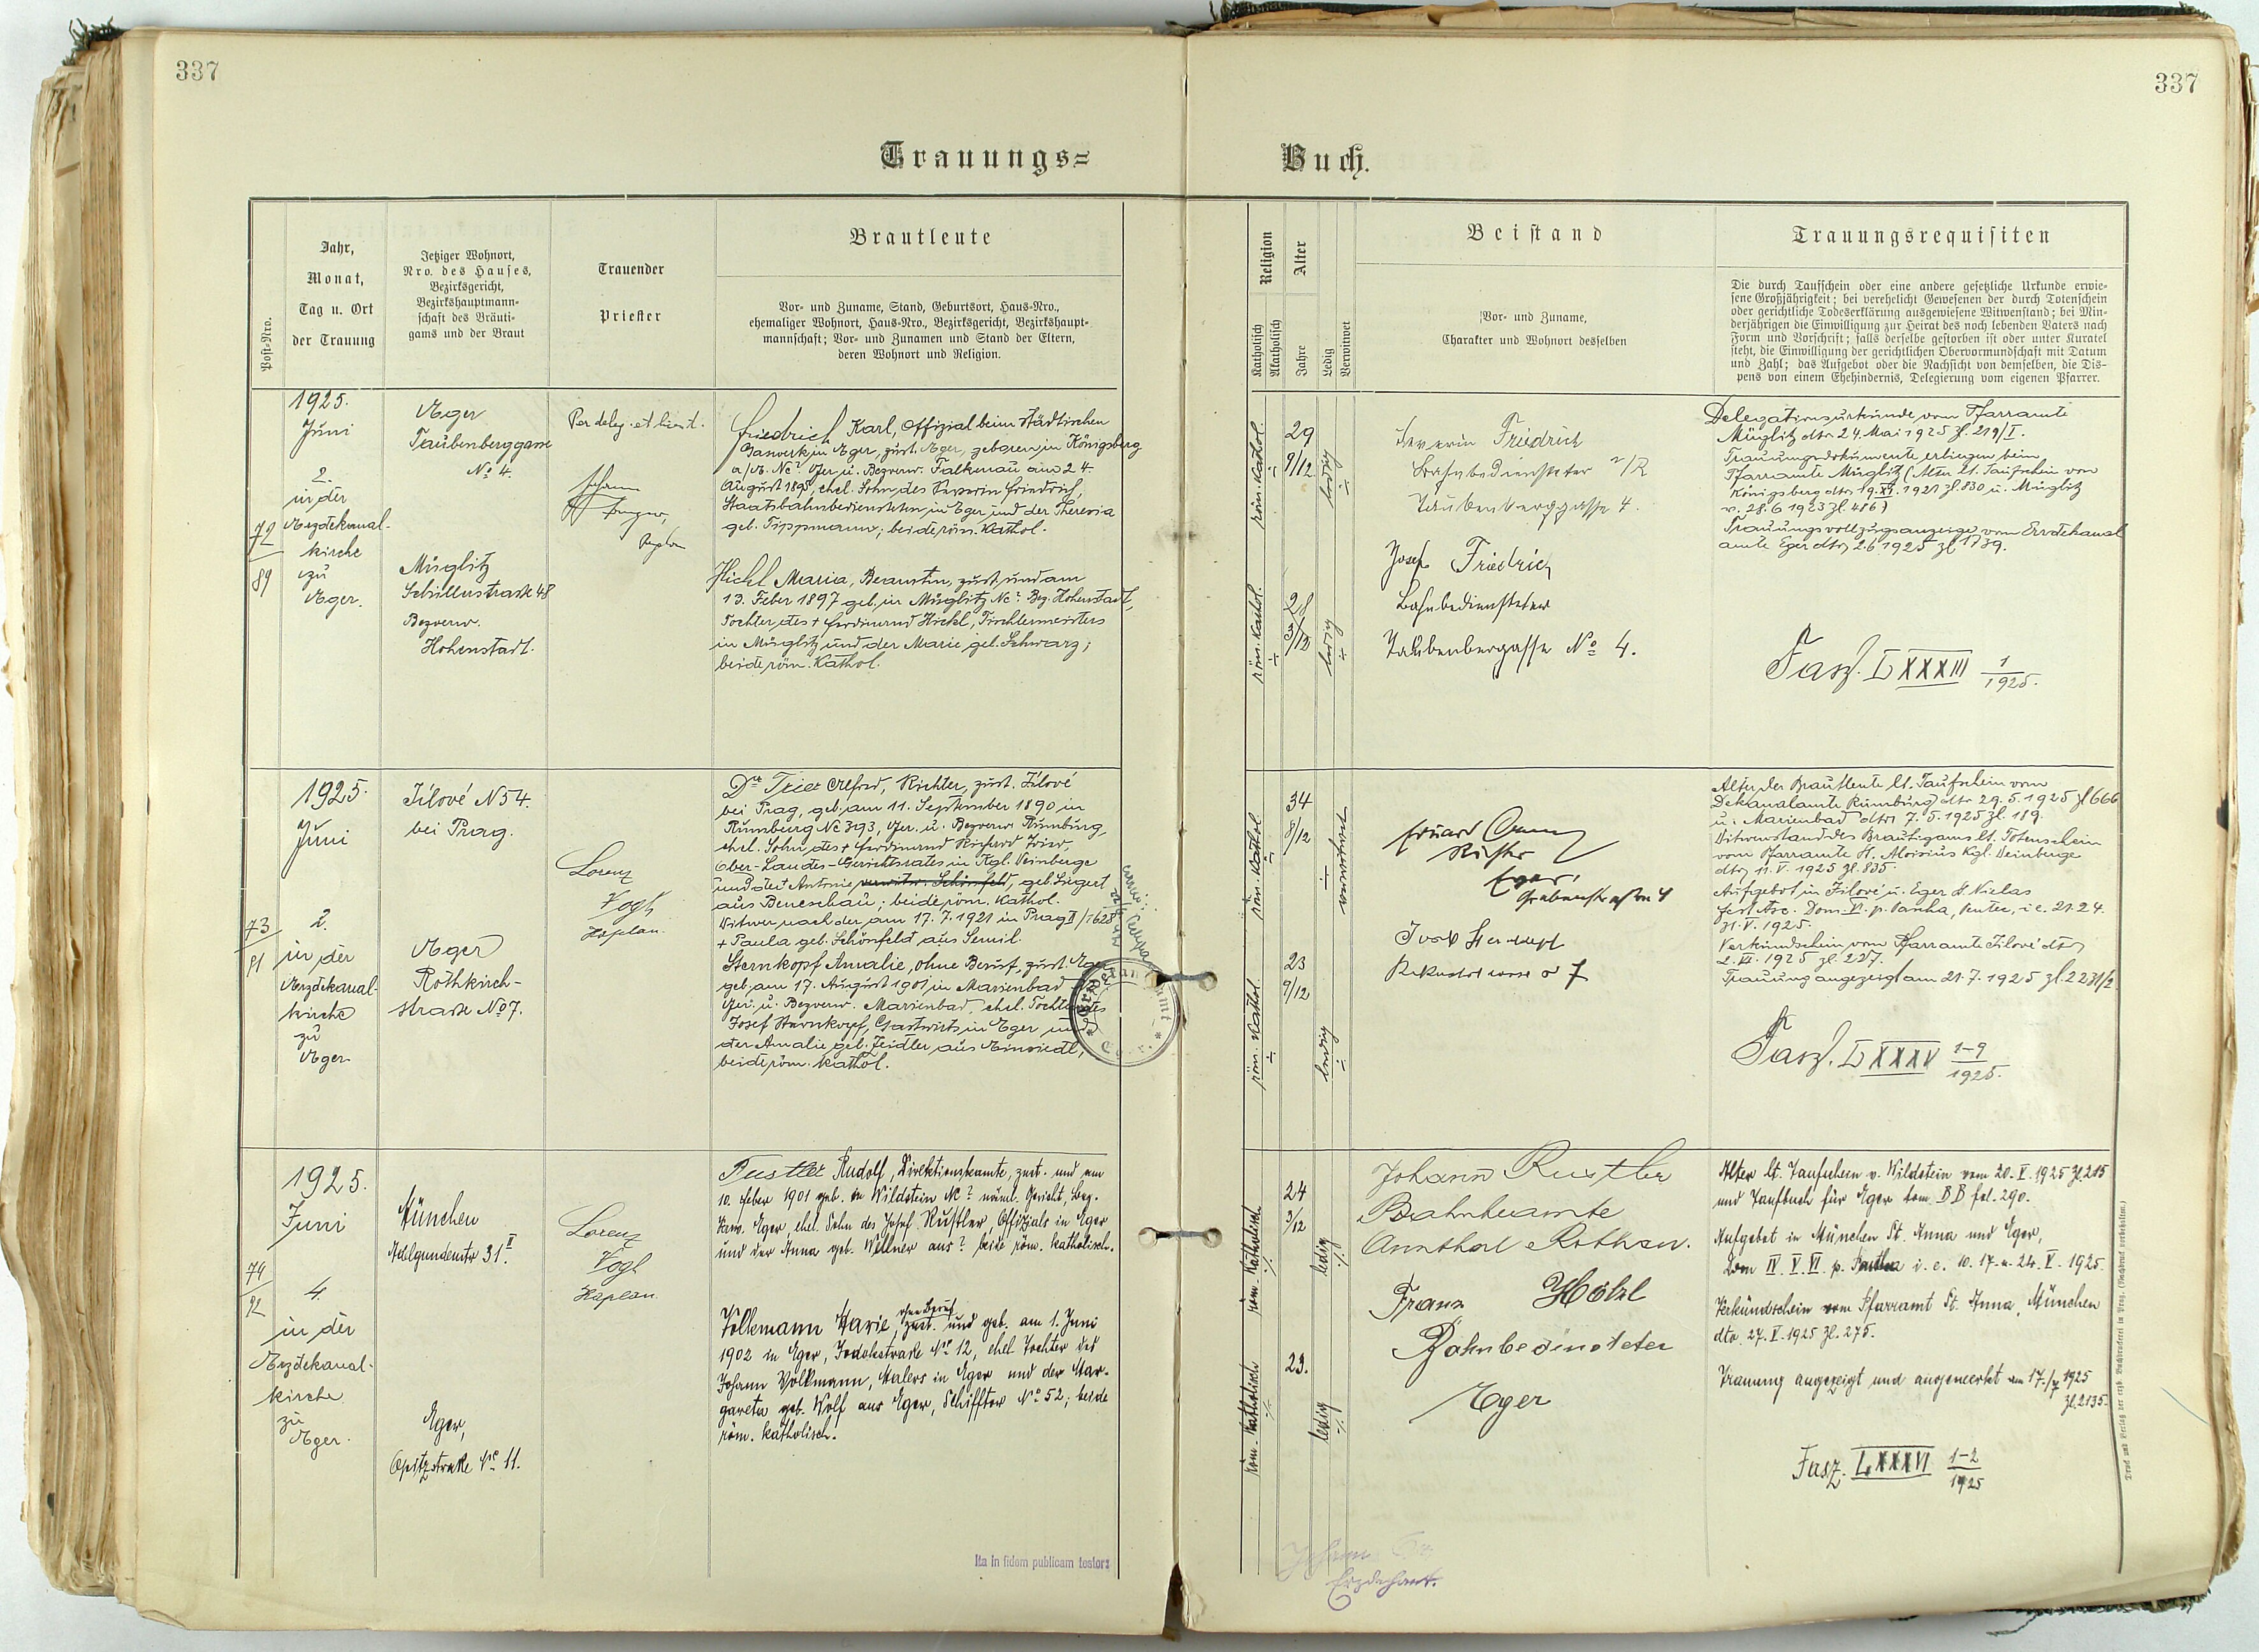 337
337
Trauungs=
Buch.
Post-Nro.
Jahr,
Monat,
Tag u. Ort
der Trauung
Jetziger Wohnort,
Nro. des Hauses,
Bezirksgericht,
Bezirkshauptmann-
schaft des Bräuti-
gams und der Braut
Trauender
Priester
Brautleute
Vor- und Zuname, Stand, Geburtsort, Haus-Nro.,
ehemaliger Wohnort, Haus-Nro., Bezirksgericht, Bezirkshaupt-
mannschaft; Vor- und Zunamen und Stand der Eltern,
deren Wohnort und Religion.
Religion
Katholisch
Akatholisch
Alter
Jahre
Ledig
Verwitwet
Beistand
Vor- und Zuname,
Charakter und Wohnort desselben
Trauungsrequisiten
Die durch Taufschein oder eine andere gesetzliche Urkunde erwie-
sene Großjährigkeit; bei verehelicht Gewesenen der durch Totenschein
oder gerichtliche Todeserklärung ausgewiesene Witwenstand; bei Min-
derjährigen die Einwilligung zur Heirat des noch lebenden Vaters nach
Form und Vorschrift; falls derselbe gestorben ist oder unter Kuratel
steht, die Einwilligung der gerichtlichen Obervormundschaft mit Datum
und Zahl; das Aufgebot oder die Nachsicht von demselben, die Dis-
pens von einem Ehehindernis, Delegierung vom eigenen Pfarrer.
72
89
1925.
Juni
2.
in der
Erzdekanal-
kirche
zu
Eger.
Eger
Taubenberggasse
No 4.
Müglitz
Schillerstraße 48
Bezverw.
Hohenstadt.
Per deleg. et licent.
Johann
Kaplan
Friedrich Karl, Offizial beim städtischen
Gaswerk in Eger, zust. Eger, geboren in Königsberg
a/E. Nc? Ger. u. Bezverw. Falkenau am 24.
August 1895, ehel. Sohn des Severin Friedrich,
Staatsbahnbediensteten in Eger und der Theresia
geb. Tippmann; beide röm. kathol.
Hickl Maria, Beamtin, zust. und am
13. Feber 1897 geb. in Müglitz Nc? Bez. Hohenstadt,
Tochter des + Ferdinand Hickl, Tischlermeisters
in Müglitz und der Marie geb. Schwarz;
beide röm. kathol.
röm. kathol.
29
9/12
ledig
röm. kathol.
28
3/12
ledig
Severin Friedrich
Bahnbediensteter i/R
Taubenberggasse 4.
Josef Friedrich
Bahnbediensteter
Taubenbergasse No 4.
Delegationsurkunde vom Pfarramte
Müglitz dto 24. Mai 1925 Zl. 219/I.
Trauungsdokumente erliegen beim
Pfarramte Müglitz (Alter lt. Taufschein von
Königsberg dto 19.XI.1921 Zl. 830 u. Müglitz
v. 28.6 1923 Zl. 486)
Trauungsvollzugsanzeige vom Erzdekanal
amte Eger dto 2.6 1925 Zl 1739.
Fasz. LXXXIII 1/1925.
73
91
1925.
Juni
2.
in der
Erzdekanal-
kirche
zu
Eger
Jílové N 54.
bei Prag.
Eger
Rothkirch-
straße No 7.
Lorenz
Vogl
Kaplan
Dr Trier Alfred, Richter, zust. Jílové
bei Prag, geb. am 11. September 1890 in
Rumburg Nc 393, Ger. u. Bezverw. Rumburg,
ehel. Sohn des + Ferdinand Richard Trier,
Ober-Landes-Gerichtsrates in Kgl. Weinberge
und der + Antonie verwitw. Schönfeld, geb. Siegert
aus Beneschau; beide röm. kathol.
Witwer nach der am 17.7.1921 in Prag II/1628
+ Paula geb. Schönfeld aus Semil.
Sternkopf Amalie, ohne Beruf, zust. Eger
geb. am 17. August 1901 in Marienbad
Ger. u. Bezverw. Marienbad, ehel. Tochter des
Josef Sternkopf, Gastwirts in Eger und
der Amalie geb. Zeidler aus Einsiedl,
beide röm. kathol.
röm. kathol
34
8/12
verwitwet
röm. kathol.
23
9/12
ledig
Eduard
Richter
Eger,
Josef Sternkopf
7
Alter der Brautleute lt. Taufschein vom
Dekanalamte Rumburg dto 29.5.1925 Zl 666
u. Marienbad dto 7.5.1925 Zl. 189.
Witwenstand des Bräutigams lt. Totenschein
vom Pfarramte St. Aloisius Kgl. Weinberge
dto 11.V.1925 Zl. 835.
Aufgebot in Jílové u. Eger St Niclas
fest Asc. Dom. VI. p. Pascha, Pentec, i.e. 21.24.
31.V.1925.
Verkündschein vom Pfarramte Jílové dto
2.VI.1925 Zl. 227.
Trauung angezeigt am 21.7.1925 Zl. 2231/2.
Fasz. LXXXV 1-9/1925.
74
92
1925.
Juni
4.
in der
Erzdekanal-
kirche
zu
Eger.
München
Adelgundenstr 31 II.
Eger,
Opitzstraße Nc 11.
Lorenz
Vogl
Kaplan
Rustler Rudolf, Direktionsbeamte, zust. und am
10. Feber 1901 geb. in Wildstein Nc? näml. Gericht, Bez.
Verw. Eger, ehel. Sohn des Josef Rustler, Offizials in Eger
und der Anna geb. Wellner aus? beide röm. katholisch.
Volkmann Marie, ohne Beruf zust. und geb. am 1. Juni
1902 in Eger, Jodokstraße Nc 12, ehel. Tochter des
Johann Volkmann, Malers in Eger und der Mar-
gareta geb. Wolf aus Eger, Schifftor No 52; beide
röm. katholisch.
röm. katholisch
24
3/12
ledig
röm. katholisch
23.
ledig
Johann Rustler
Bahnbeamte
Franz Hölzl
Bahnbediensteter
Eger
Alter lt. Taufschein v. Wildstein vom 20.V.1925 Zl. 215
und Taufbuch für Eger tom. BB fol. 290.
Aufgebot in München St. Anna und Eger,
Dom IV. V. VI. p. Pascha i.e. 10. 17. u. 24. V. 1925.
Verkündschein vom Pfarramt St. Anna, München
dto 27.V.1925 Zl. 275.
Trauung angezeigt und angemerkt am 17./7 1925
Zl. 2135.
Fasz. LXXXVI 1-2/1925
Ita in fidem publicam testor:
Erzdechant.
Druck und Verlag der erzb. Buchdruckerei in Prag. (Nachdruck verboten.)